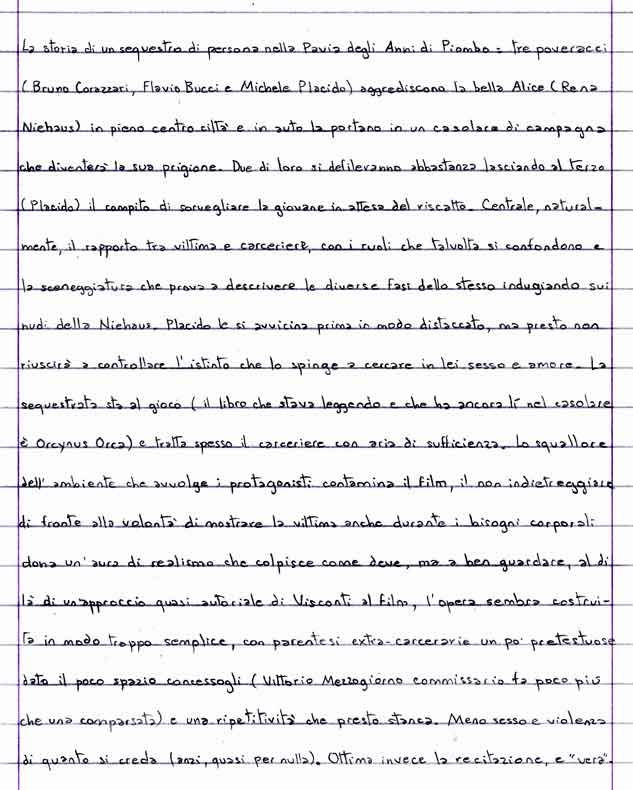 La storia di un sequestro di persona nella Pavia degli Anni di Piombo: tre poveracci
(Bruno Corazzari, Flavio Bucci e Michele Placido) aggrediscono la bella Alice (Rena
Niehaus) in pieno centro città e in auto la portano in un casolare di campagna
che diventerà la sua prigione. Due di loro si defileranno abbastanza lasciando al terzo
(Placido) il compito di sorvegliare la giovane in attesa del riscatto. Centrale, natural-
mente, il rapporto tra vittima e carceriere, con i ruoli che talvolta si confondono e
la sceneggiatura che prova a descrivere le diverse fasi dello stesso indugiando sui
nudi della Niehaus. Placido le si avvicina prima in modo distaccato, ma presto non
riuscirà a controllare l'istinto che lo spinge a cercare in lei sesso e amore. La
sequestrata sta al gioco (il libro che stava leggendo e che ha ancora lì nel casolare
è Orcynus Orca) e tratta spesso il carceriere con aria di sufficienza. Lo squallore
dell'ambiente che avvolge i protagonisti contamina il film, il non indietreggiare
di fronte alla volontà di mostrare la vittima anche durante i bisogni corporali
dona un'aura di realismo che colpisce come deve, ma a ben guardare, al di
là di unapproccio quasi autoriale di Visconti al film, l'opera sembra costrui-
ta in modo troppo semplice, con parentesi extra-carcerarie un po' pretestuose
dato il poco spazio concessogli (Vittorio Mezzogiorno commissario fa poco più
che una comparsata) e una ripetitività che presto stanca. Meno sesso e violenza
di quanto si creda (anzi, quasi per nulla). Ottima invece la recitazione, e "vera".